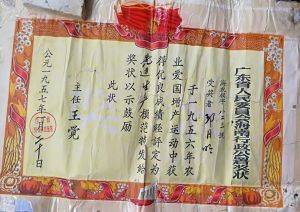 广东省人民委员会海南行政公署奖状
受奖者
于一九五六年农
业爱国增产运动中获
得优良成绩经评定为
先进生产模范特发给
奖状以示鼓励
此状
主任 王觉
公元一九五七年 月 日